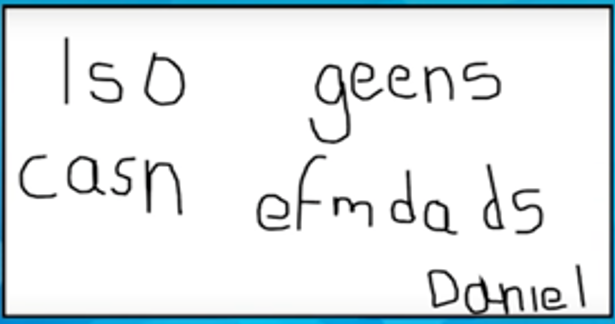 lso geens
casn efmda ds
Daniel